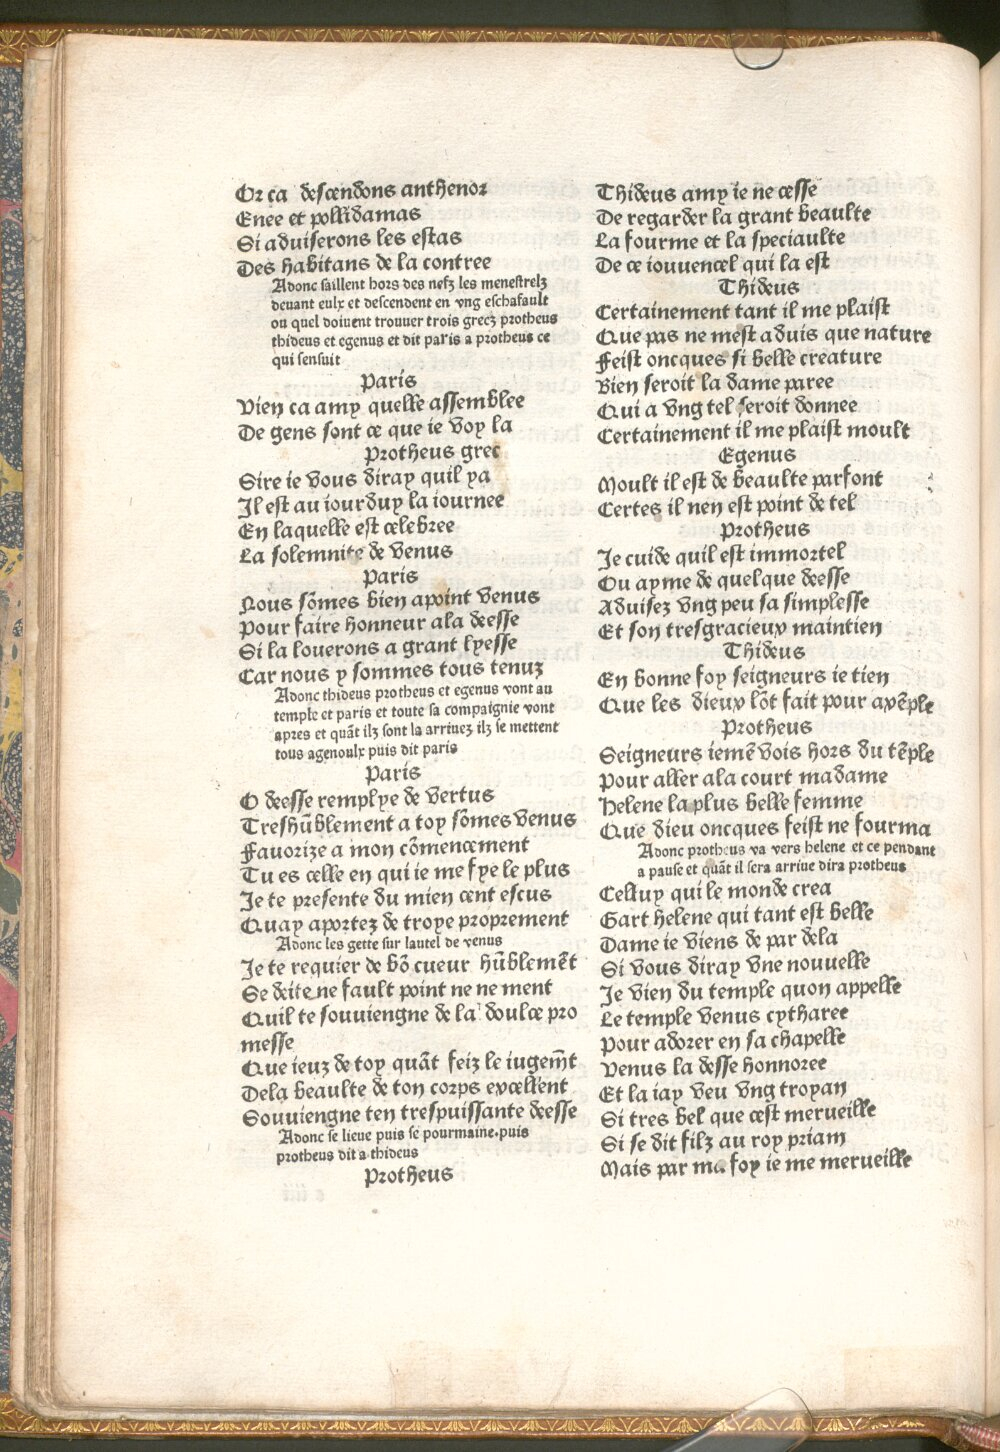 Or ca descendons anthenor
Enee et pollidamas
Si aduiserons les estas
Des habitans de la contree
Adonc saillent hors des nefz les menestrelz
deuant eulx et descendent en vng eschafault
ou quel doiuent trouuer trois grecz protheus
thideus et egenus et dit paris a protheus ce
qui sensuit
Paris
Vien ca amy quelle assemblee
De gens sont ce que ie voy la
Protheus grec
Sire ie vous diray quil ya
Il est au iourduy la iournee
En laquelle est celebree
La solemnite de venus
Paris
Nous sōmes bien apoint venus
Pour faire honneur ala deesse
Si la louerons a grant lyesse
Car nous y sommes tous tenuz
Adonc thideus protheus et egenus vont au
temple et paris et toute sa compaignie vont
apres et quāt ilz sont la arriuez ilz se mettent
tous agenoulx puis dit paris
Paris
O deesse remplye de vertus
Treshūblement a toy sōmes venus
Fauorize a mon cōmencement
Tu es celle en qui ie me fye le plus
Je te presente du mien cent escus
Quay aportez de troye proprement
Adonc les gette sur lautel de venus
Je te requier de bō cueur hūblemēt
Se deite ne fault point ne ne ment
Quil te souuiengne de la doulce pro
messe
Que ieuz de toy quāt feiz le iugem̄t
Dela beaulte de ton corps excellent
Souuiengne ten trespuissante deesse
Adonc se lieue puis se pourmaine.puis
protheus dit a thideus
Protheus
Thideus amy ie ne cesse
De regarder la grant beaulte
La fourme et la speciaulte
De ce iouuencel qui la est
Thideus
Certainement tant il me plaist
Que pas ne mest aduis que nature
Feist oncques si belle creature
Bien seroit la dame paree
Qui a vng tel seroit donnee
Certainement il me plaist moult
Egenus
Moult il est de beaulte parfont
Certes il nen est point de tel
Protheus
Je cuide quil est immortel
Ou ayme de quelque deesse
Aduisez vng peu sa simplesse
Et son tresgracieux maintien
Thideus
En bonne foy seigneurs ie tien
Que les dieux lōt fait pour axēple
Protheus
Seigneurs iemē vois hors du tēple
Pour aller ala court madame
Helene la plus belle femme
Que dieu oncques feist ne fourma
Adonc protheus va vers helene et ce pendant
a pause et quāt il sera arriue dira protheus
Celluy qui le monde crea
Gart helene qui tant est belle
Dame ie viens de par dela
Si vous diray vne nouuelle
Je vien du temple quon appelle
Le temple venus cytharee
Pour adorer en sa chapelle
Venus la desse honnoree
Et la iay veu vng troyan
Si tres bel que cest merueille
Si se dit filz au roy priam
Mais par ma foy ie me merueille